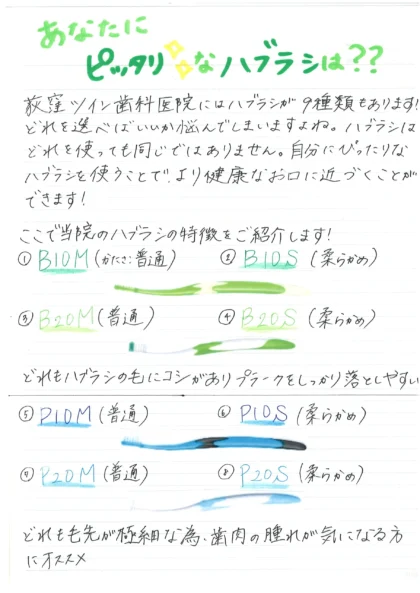 あなたに
ピッタリなハブラシは??
荻窪ツイン歯科医院にはハブラシが9種類もあります!
どれを選べばいいか悩んでしまいますよね。ハブラシは
どれを使っても同じではありません。自分にぴったりな
ハブラシを使うことで、より健康なお口に近づくことが
できます!
ここで当院のハブラシの特徴をご紹介します!
① B10M (かたさ:普通) ② B10S (柔らかめ)
③ B20M (普通) ④ B20S (柔らかめ)
どれもハブラシの毛にコシがありプラークをしっかり落としやすい
⑤ P10M (普通) ⑥ P10S (柔らかめ)
⑦ P20M (普通) ⑧ P20S (柔らかめ)
どれも毛先が極細な為、歯肉の腫れが気になる方
にオススメ